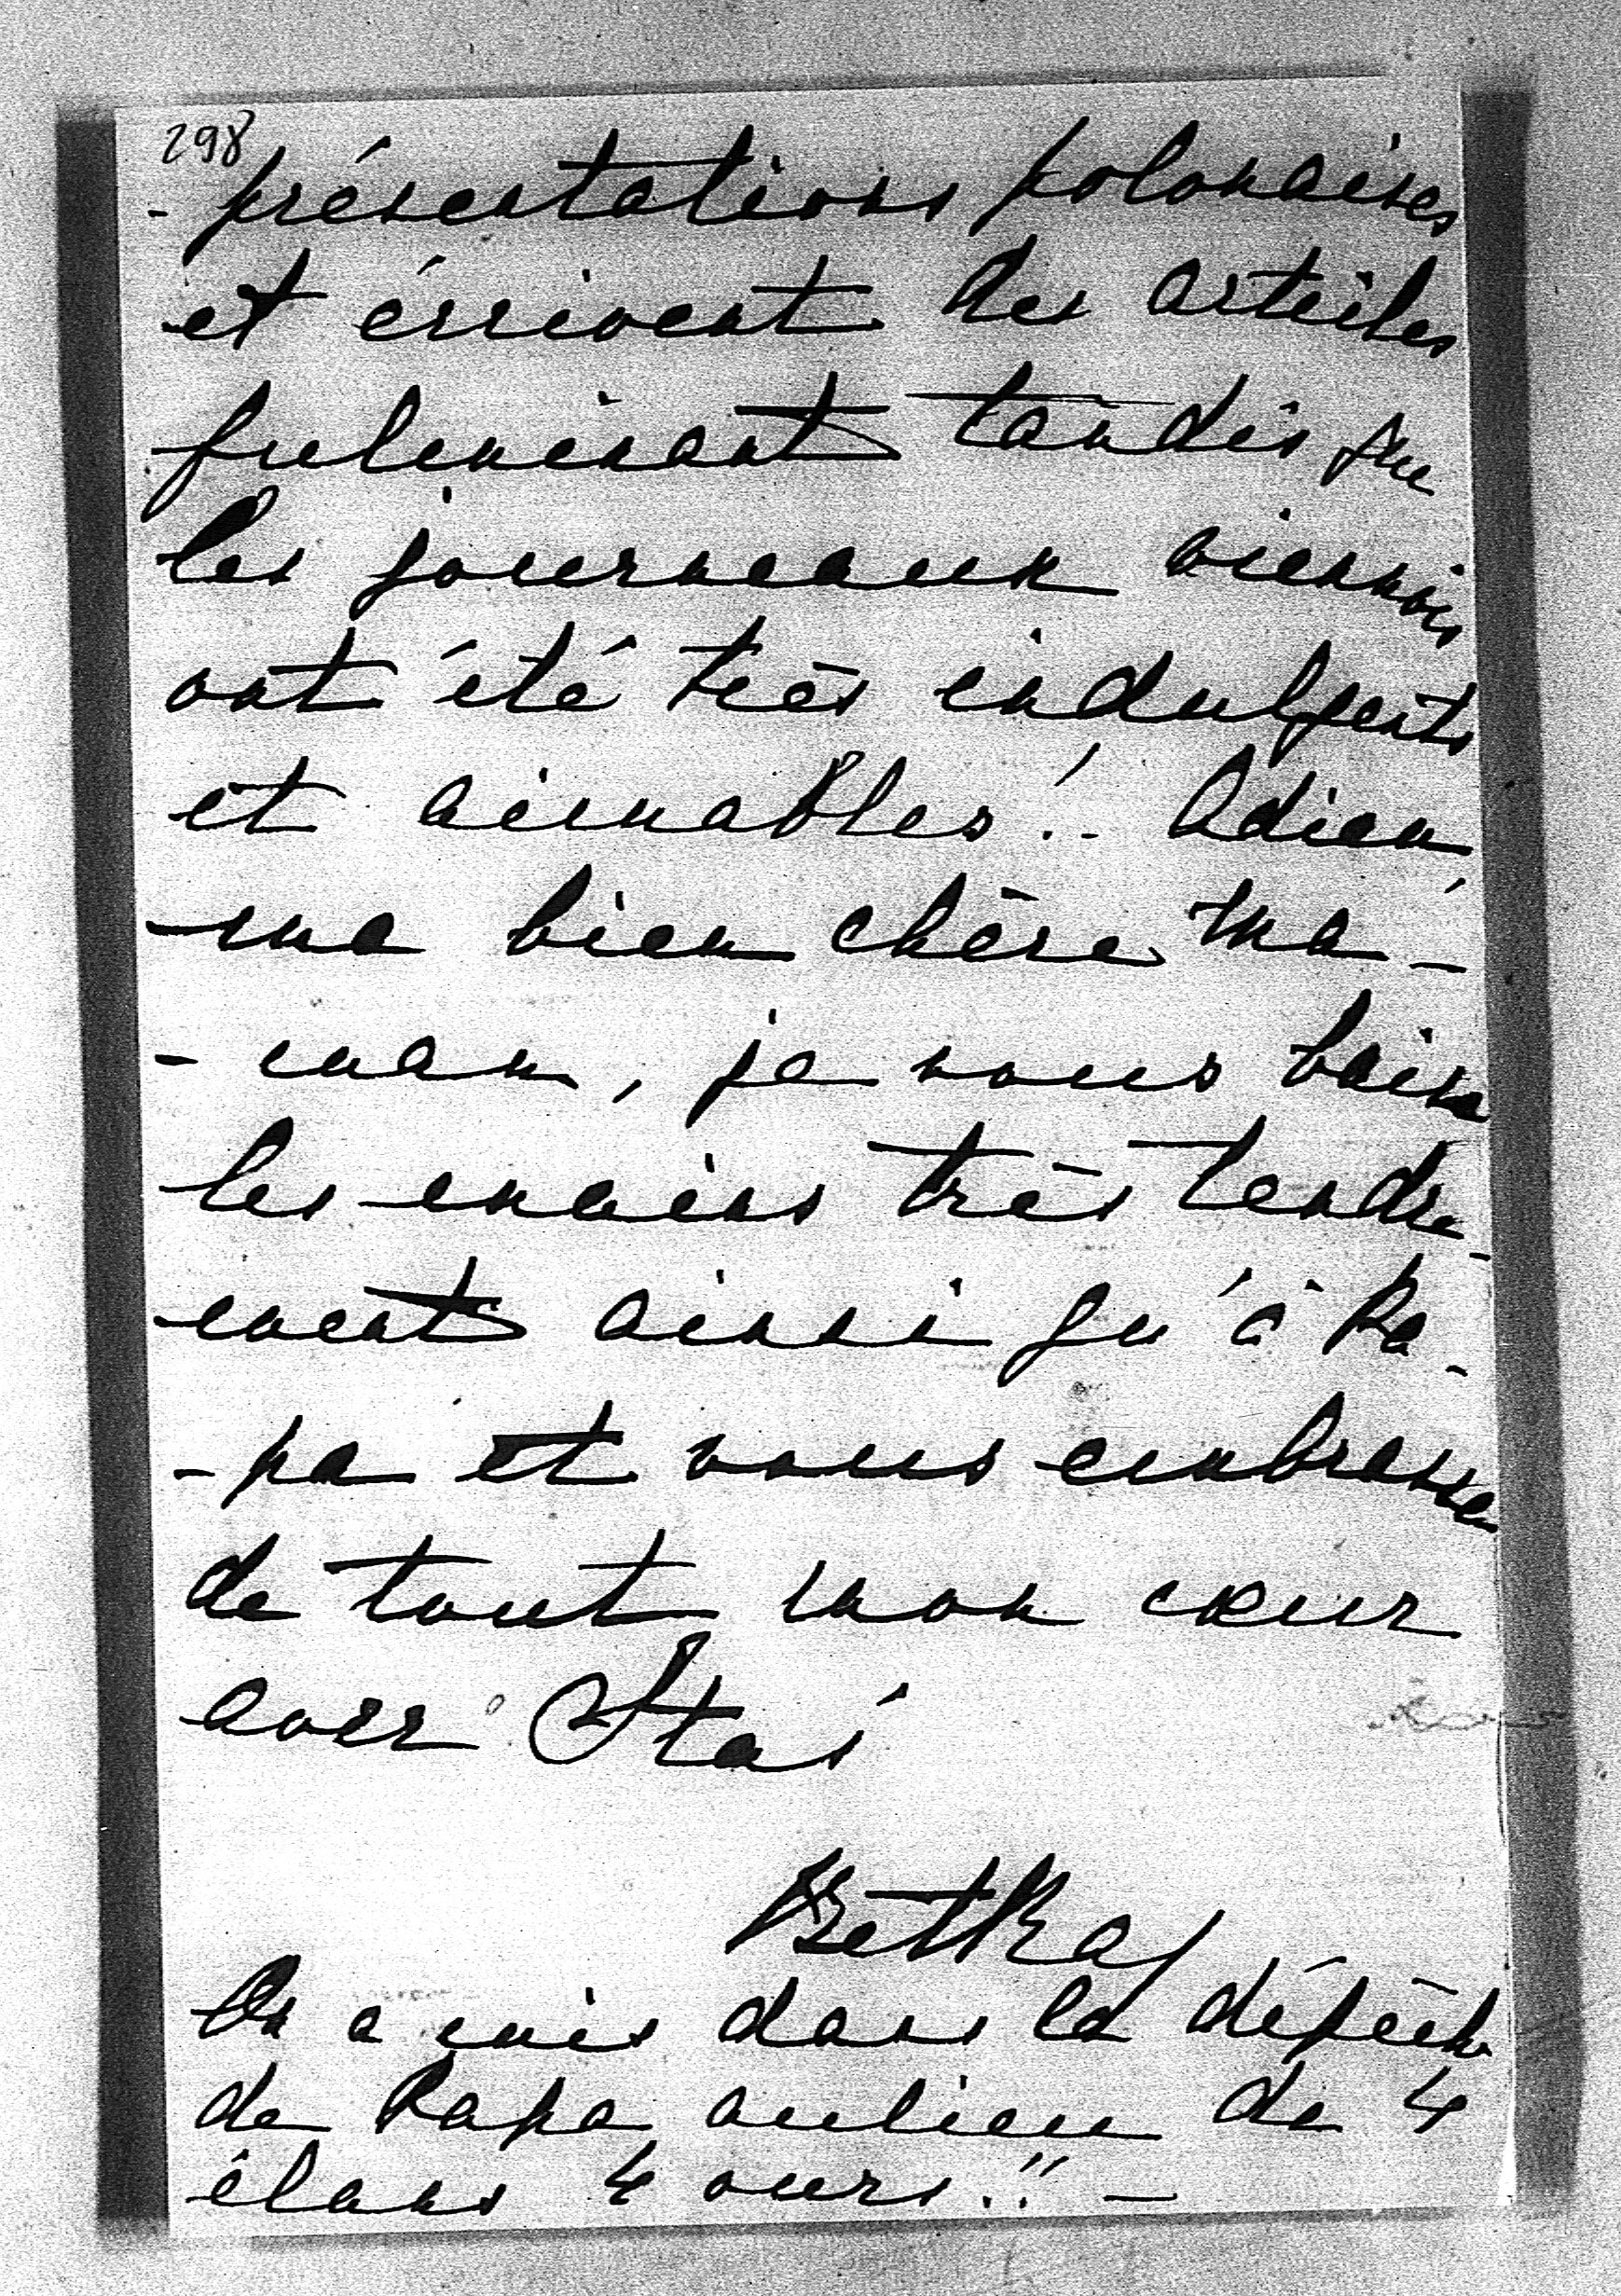 298
- présentations polonaises
et écrivent des articles
fulminant tandis que
les journeaux viennois
ont été très indulgents
et aimables!.. Adieu,
ma bien chère Ma-
- man, je vous baise
les mains très tendre-
ment ainsi qu'à Pa-
- pa et vous embrasse
de tout mon cœur
avec Staś
Betka
On a mis dans la dépêche
de Papa aulieu de 4
élans 4 ours!! —